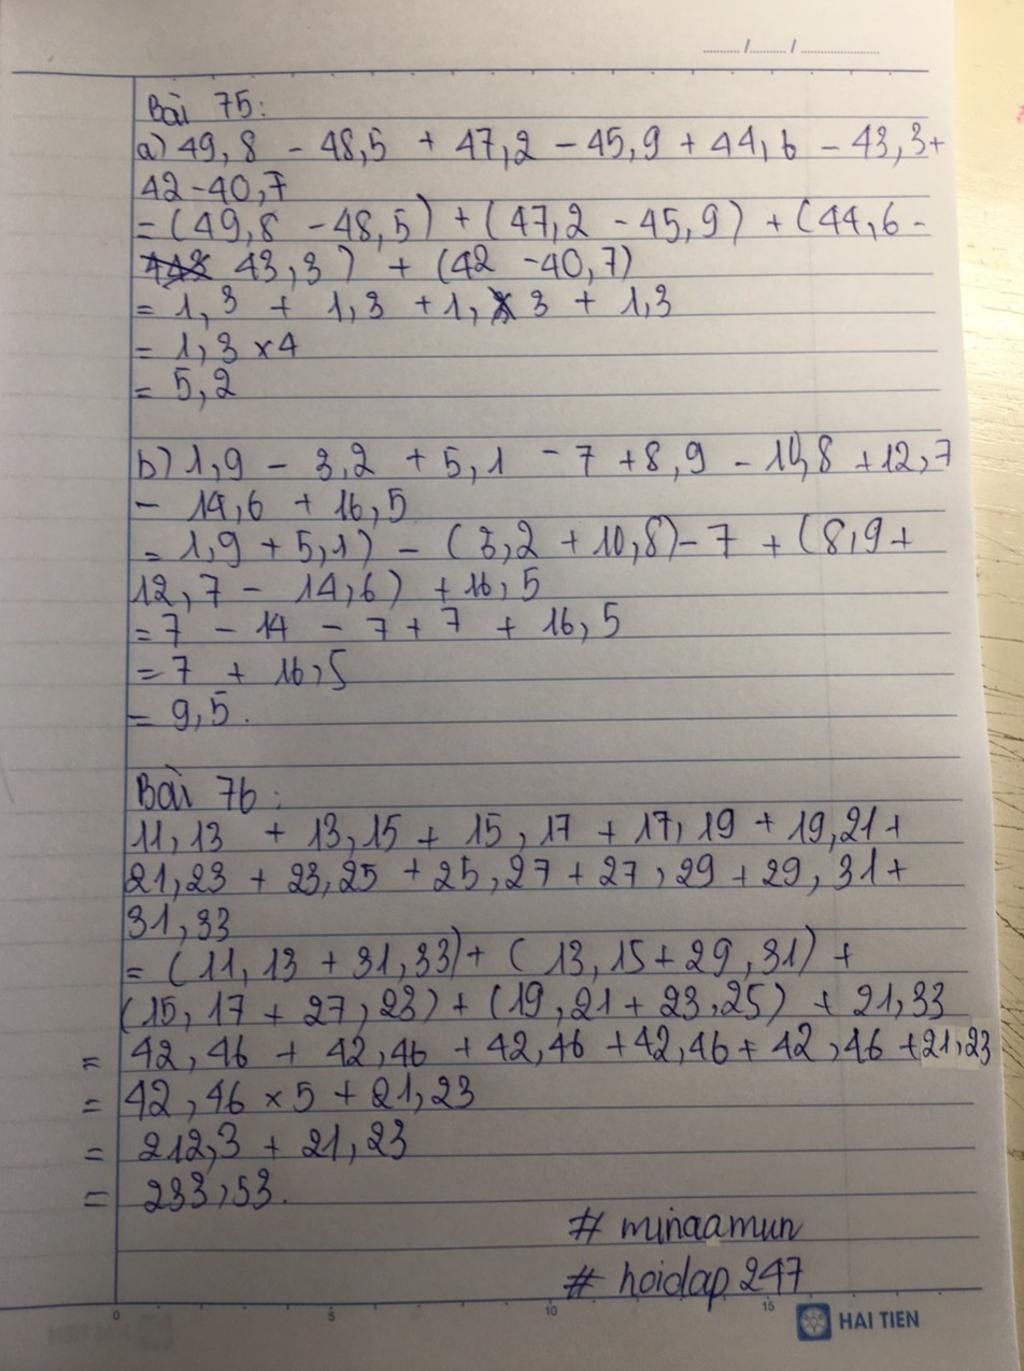 Bài 75:
a) 49,8 - 48,5 + 47,2 - 45,9 + 44,6 - 43,3 +
42 - 40,7
= (49,8 - 48,5) + (47,2 - 45,9) + (44,6 -
43,3) + (42 - 40,7)
= 1,3 + 1,3 + 1,3 + 1,3
= 1,3 x 4
= 5,2
b) 1,9 - 3,2 + 5,1 - 7 + 8,9 - 10,8 + 12,7
- 14,6 + 16,5
= 1,9 + 5,1) - (3,2 + 10,8) - 7 + (8,9 +
12,7 - 14,6) + 16,5
= 7 - 14 - 7 + 7 + 16,5
= 7 + 16,5
= 9,5.
Bài 76:
11,13 + 13,15 + 15,17 + 17,19 + 19,21 +
21,23 + 23,25 + 25,27 + 27,29 + 29,31 +
31,33
= (11,13 + 31,33) + (13,15 + 29,31) +
(15,17 + 27,23) + (19,21 + 23,25) + 21,33
= 42,46 + 42,46 + 42,46 + 42,46 + 42,46 + 21,23
= 42,46 x 5 + 21,23
= 212,3 + 21,23
= 233,53.
# minaamun
# hoidap247
0 5 10 15
HAI TIEN